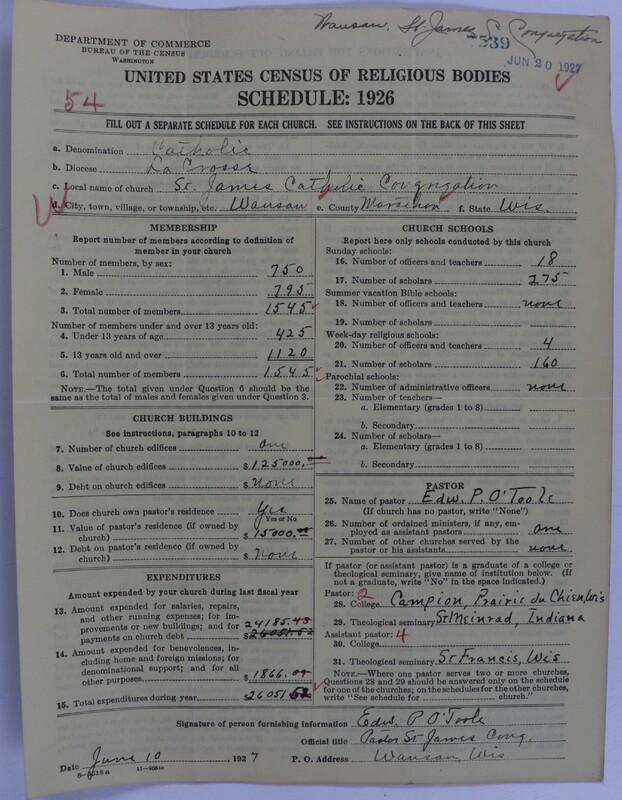 Wausau, St. James C. Congregation
DEPARTMENT OF COMMERCE
BUREAU OF THE CENSUS
WASHINGTON
539
JUN 20 1927
UNITED STATES CENSUS OF RELIGIOUS BODIES
SCHEDULE: 1926
54
FILL OUT A SEPARATE SCHEDULE FOR EACH CHURCH. SEE INSTRUCTIONS ON THE BACK OF THIS SHEET
a. Denomination Catholic
b. Diocese La Crosse
c. Local name of church St. James Catholic Congregation
d. City, town, village, or township, etc. Wausau e. County Marathon f. State Wis.
MEMBERSHIP
Report number of members according to definition of
member in your church
Number of members, by sex:
1. Male 750
2. Female 795
3. Total number of members 1545
Number of members under and over 13 years old:
4. Under 13 years of age 425
5. 13 years old and over 1120
6. Total number of members 1545
NOTE.—The total given under Question 6 should be the
same as the total of males and females given under Question 3.
CHURCH BUILDINGS
See instructions, paragraphs 10 to 12
7. Number of church edifices one
8. Value of church edifices $125000.00
9. Debt on church edifices $ None
10. Does church own pastor's residence Yes
Yes or No
11. Value of pastor's residence (if owned by
church) $15000.00
12. Debt on pastor's residence (if owned by
church) $ None
EXPENDITURES
Amount expended by your church during last fiscal year
13. Amount expended for salaries, repairs,
and other running expenses; for im-
provements or new buildings; and for
payments on church debt 24185.43
$26051.52
14. Amount expended for benevolences, in-
cluding home and foreign missions; for
denominational support; and for all
other purposes $1866.09
15. Total expenditures during year $26051.52
CHURCH SCHOOLS
Report here only schools conducted by this church
Sunday schools:
16. Number of officers and teachers 18
17. Number of scholars 275
Summer vacation Bible schools:
18. Number of officers and teachers none
19. Number of scholars
Week-day religious schools:
20. Number of officers and teachers 4
21. Number of scholars 160
Parochial schools:
22. Number of administrative officers none
23. Number of teachers—
a. Elementary (grades 1 to 8)
b. Secondary
24. Number of scholars—
a. Elementary (grades 1 to 8)
b. Secondary
PASTOR
25. Name of pastor Edw. P. O'Toole
(If church has no pastor, write "None")
26. Number of ordained ministers, if any, em-
ployed as assistant pastors one
27. Number of other churches served by the
pastor or his assistants none
If pastor (or assistant pastor) is a graduate of a college or
theological seminary, give name of institution below. (If
not a graduate, write "No" in the space indicated.)
Pastor: 2
28. College Campion, Prairie du Chien, Wis
29. Theological seminary St Meinrad, Indiana
Assistant pastor: 4
30. College
31. Theological seminary St Francis, Wis
NOTE.—Where one pastor serves two or more churches,
Questions 28 and 29 should be answered only on the schedule
for one of the churches; on the schedules for the other churches,
write "See schedule for church."
Signature of person furnishing information Edw. P O'Toole
Official title Pastor St James Cong.
Date June 10, 1927 P. O. Address Wausau, Wis
8-5518a